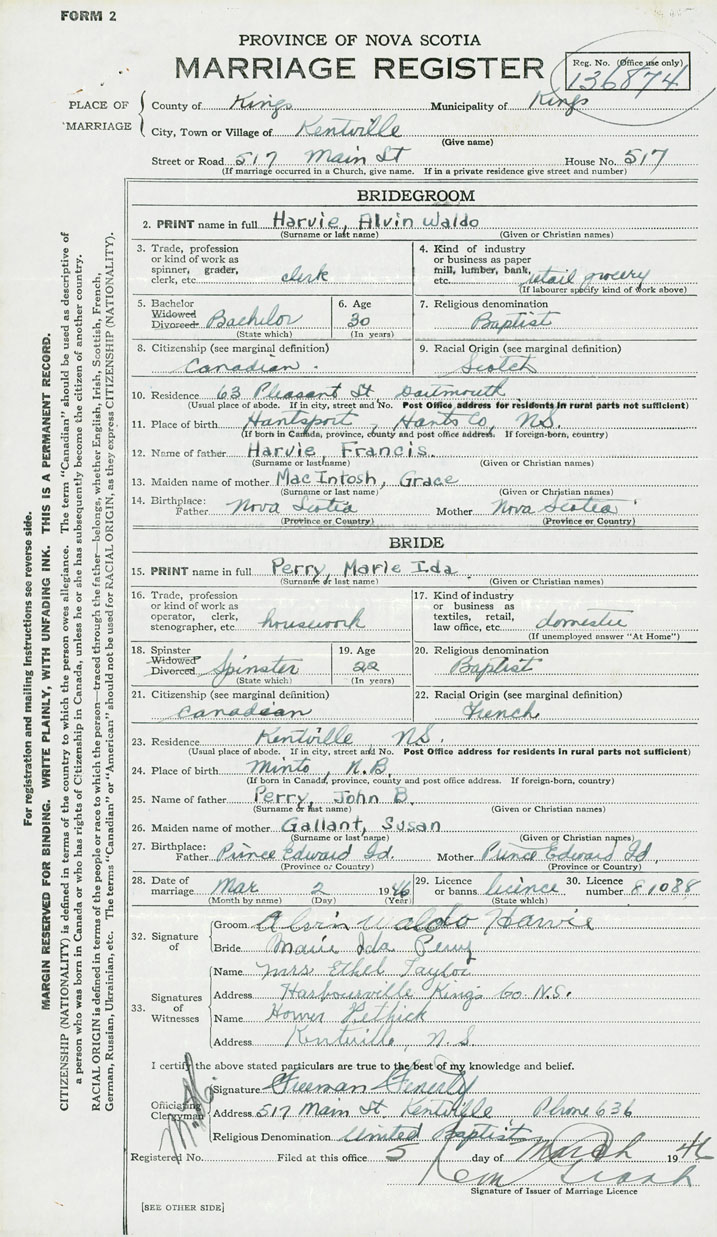 FORM 2
PROVINCE OF NOVA SCOTIA
MARRIAGE REGISTER
Reg. No. (Office use only)
136874
PLACE OF MARRIAGE
County of Kings Municipality of Kings
City, Town or Village of Kentville
(Give name)
Street or Road 517 Main St House No. 517
(If marriage occurred in a Church, give name. If in a private residence give street and number)
BRIDEGROOM
2. PRINT name in full Harvie, Alvin Waldo
(Surname or last name) (Given or Christian names)
3. Trade, profession or kind of work as spinner, grader, clerk, etc. clerk
4. Kind of industry or business as paper mill, lumber, bank, etc. retail grocery
(If labourer specify kind of work above)
5. Bachelor Widowed Divorced Bachelor
(State which)
6. Age 30
(In years)
7. Religious denomination
Baptist
8. Citizenship (see marginal definition)
Canadian
9. Racial Origin (see marginal definition)
Scotch
10. Residence 63 Pleasant St, Dartmouth
(Usual place of abode. If in city, street and No. Post Office address for residents in rural parts not sufficient)
11. Place of birth Hantsport, Hants Co, N.S.
(If born in Canada, province, county and post office address. If foreign-born, country)
12. Name of father Harvie, Francis.
(Surname or last name) (Given or Christian names)
13. Maiden name of mother MacIntosh, Grace
(Surname or last name) (Given or Christian names)
14. Birthplace: Father Nova Scotia Mother Nova Scotia
(Province or Country) (Province or Country)
BRIDE
15. PRINT name in full Perry, Marie Ida
(Surname or last name) (Given or Christian names)
16. Trade, profession or kind of work as operator, clerk, stenographer, etc. housework
17. Kind of industry or business as textiles, retail, law office, etc. domestic
(If unemployed answer "At Home")
18. Spinster Widowed Divorced Spinster
(State which)
19. Age 22
(In years)
20. Religious denomination
Baptist
21. Citizenship (see marginal definition)
Canadian
22. Racial Origin (see marginal definition)
French
23. Residence Kentville N.S.
(Usual place of abode. If in city, street and No. Post Office address for residents in rural parts not sufficient)
24. Place of birth Minto, N.B.
(If born in Canada, province, county and post office address. If foreign-born, country)
25. Name of father Perry, John B.
(Surname or last name) (Given or Christian names)
26. Maiden name of mother Gallant, Susan
(Surname or last name) (Given or Christian names)
27. Birthplace: Father Prince Edward Id. Mother Prince Edward Id.
(Province or Country) (Province or Country)
28. Date of marriage Mar 2 1946
(Month by name) (Day) (Year)
29. Licence or banns licence
(State which)
30. Licence number 81088
32. Signature of
Groom Alvin Waldo Harvie
Bride Marie Ida Perry
33. Signatures of Witnesses
Name Mrs Ethel Taylor
Address Harbourville Kings Co. N.S.
Name Homer Pethick
Address Kentville, N.S.
I certify the above stated particulars are true to the best of my knowledge and belief.
Officiating Clergyman
Signature Freeman Fenerty
Address 517 Main St. Kentville Phone 636
Religious Denomination United Baptist
Registered No. Filed at this office 5 day of March 1946
Signature of Issuer of Marriage Licence
[SEE OTHER SIDE]
For registration and mailing instructions see reverse side.
MARGIN RESERVED FOR BINDING. WRITE PLAINLY, WITH UNFADING INK. THIS IS A PERMANENT RECORD.
CITIZENSHIP (NATIONALITY) is defined in terms of the country to which the person owes allegiance. The term "Canadian" should be used as descriptive of
a person who was born in Canada or who has rights of Citizenship in Canada, unless he or she has subsequently become the citizen of another country.
RACIAL ORIGIN is defined in terms of the people or race to which the person—traced through the father—belongs, whether English, Irish, Scottish, French,
German, Russian, Ukrainian, etc. The terms "Canadian" or "American" should not be used for RACIAL ORIGIN, as they express CITIZENSHIP (NATIONALITY).